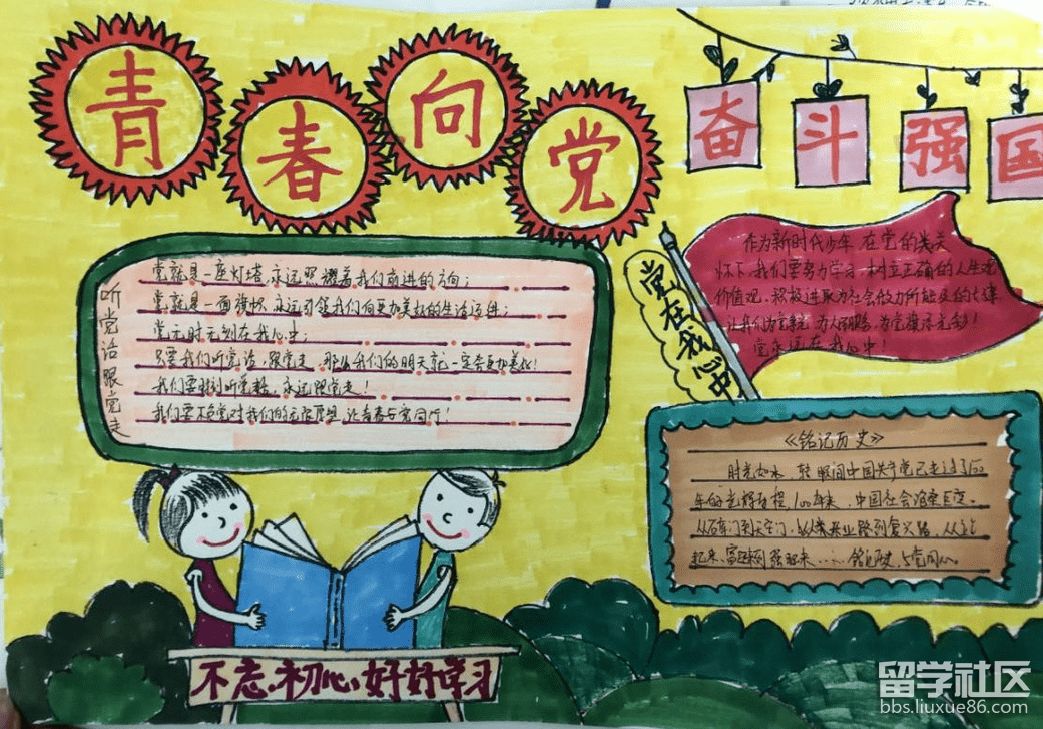 青春向党
奋斗强国
听党话跟党走
党就是一座灯塔,永远照耀着我们前进的方向;
党就是一面旗帜,永远引领我们向更加美好的生活迈进;
党无时无刻在我心中;
只要我们听党话,跟党走,那么我们的明天就一定会更加美好!
我们要时刻听党话,永远跟党走!
我们要不负党对我们的无限厚望,让青春与党同行!
党在我心中
作为新时代少年,在党的关
怀下,我们要努力学习,树立正确的人生观
价值观,积极进取为社会做力所能及的大事
让我们为党 为人 为党
党永远在我心中!
《铭记历史》
时光如水,转眼间中国共产党已走过了100
年的光辉历程,100年来,中国社会沧桑巨变、
从石库门到天安门,从 兴业路到复兴路,从站
起来、富起来到强起来……铭记历史,与党同心。
不忘初心,好好学习
留学社区
bbs.liuxue86.com